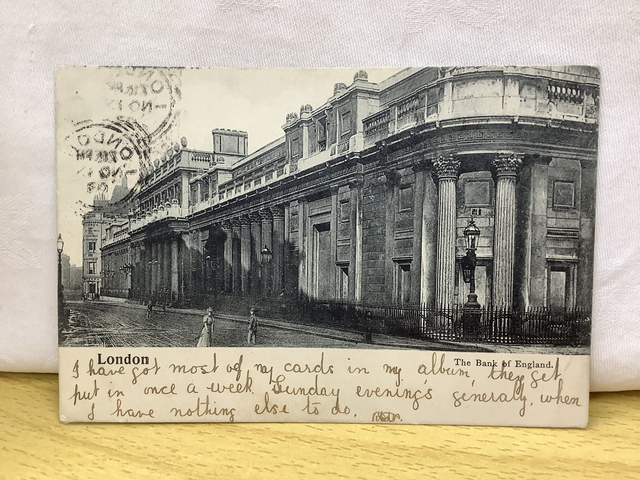 LONDON
London
The Bank of England.
I have got most of my cards in my album, they get
put in once a week, Sunday evening's generaly, when
I have nothing else to do.